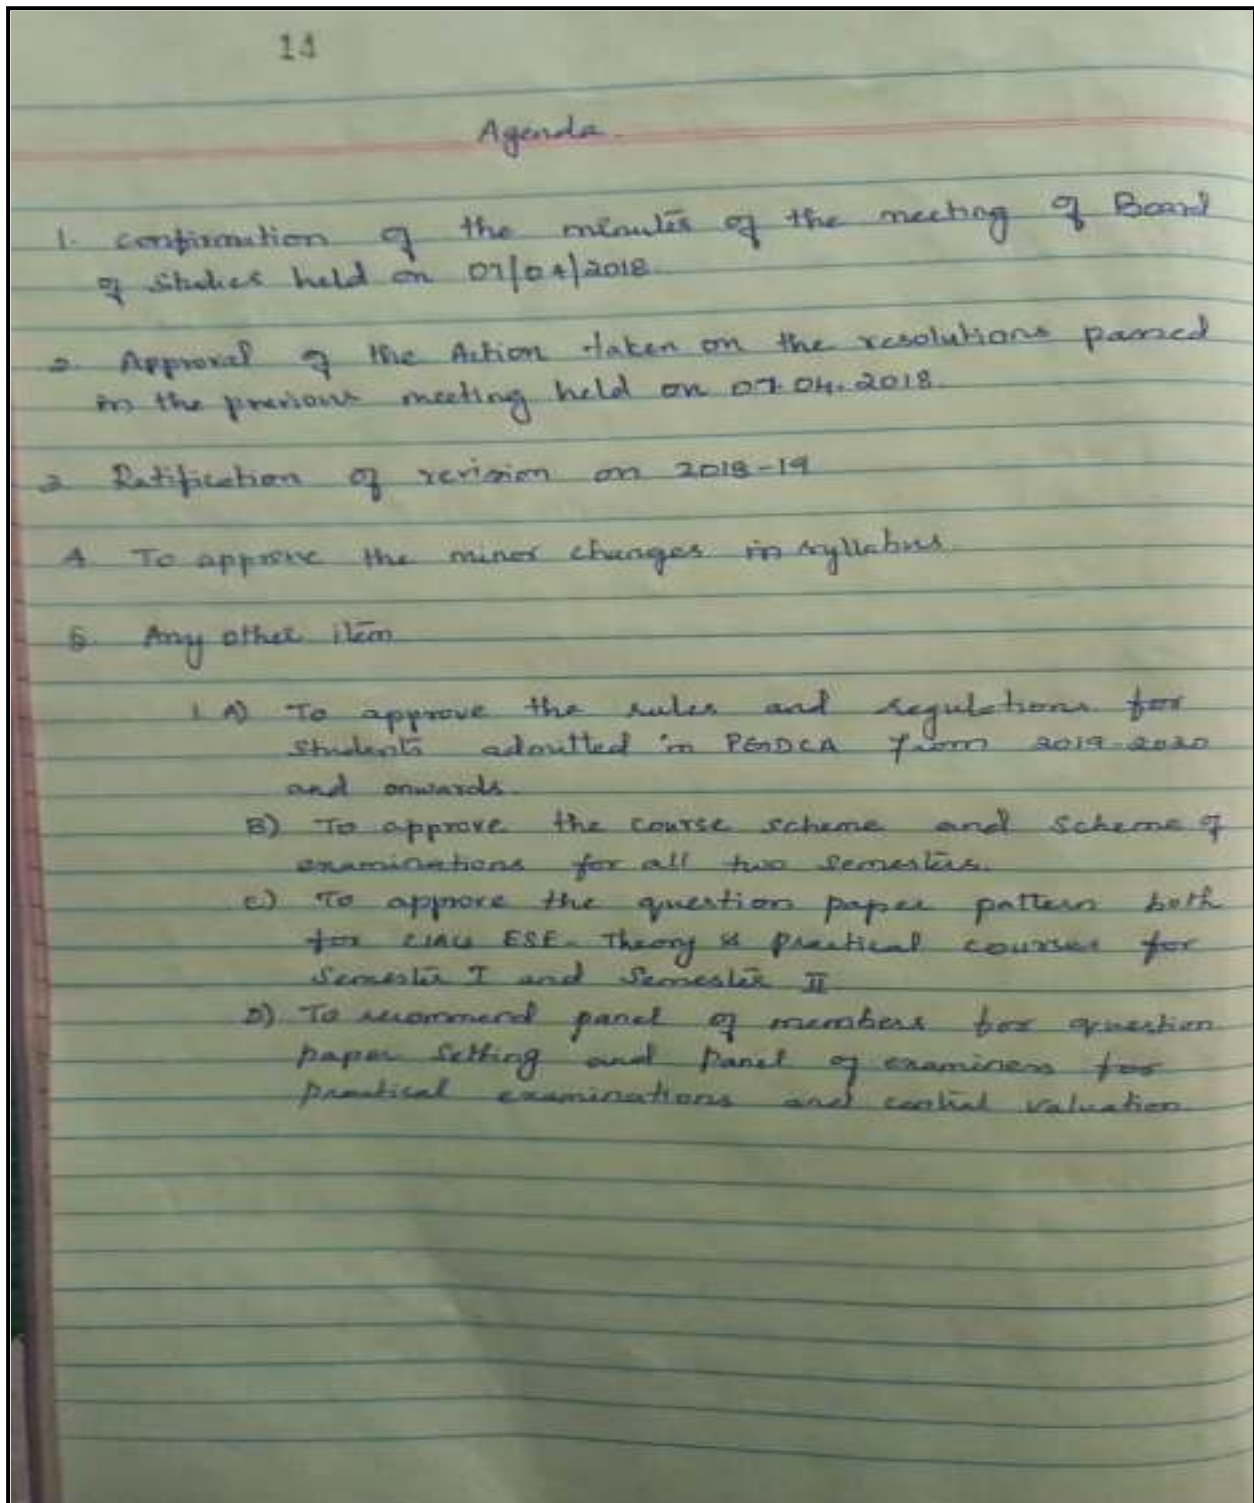 14
Agenda.
1. Confirmation of the minutes of the meeting of Board
of Studies held on 07/04/2018
2. Approval of the Action taken on the resolutions passed
in the previous meeting held on 07.04.2018.
3 Ratification of revision on 2018-19
4 To approve the minor changes in syllabus
5. Any other item
1. A) To approve the rules and regulations for
students admitted in PGDCA from 2019-2020
and onwards.
B) To approve the course scheme and scheme of
examinations for all two semesters.
C) To approve the question paper pattern both
for ESE- Theory & practical courses for
Semester I and Semester II
D) To recommend panel of members for question
paper setting and Panel of examiners for
practical examinations and central valuation